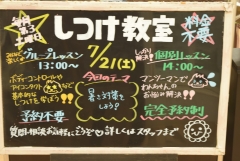 しつけ教室
料金不要
グループレッスン
13:00〜
7/21(土)
個別レッスン
14:00〜
ボディーコントロールや
アイコンタクトなど
基本的な
しつけを学ぼう!!
今日のテーマ
暑さ対策をしよう!
マンツーマンで
わんちゃんの
お悩み解決!!
予約不要
完全予約制
質問・相談お気軽にどうぞ 詳しくはスタッフまで